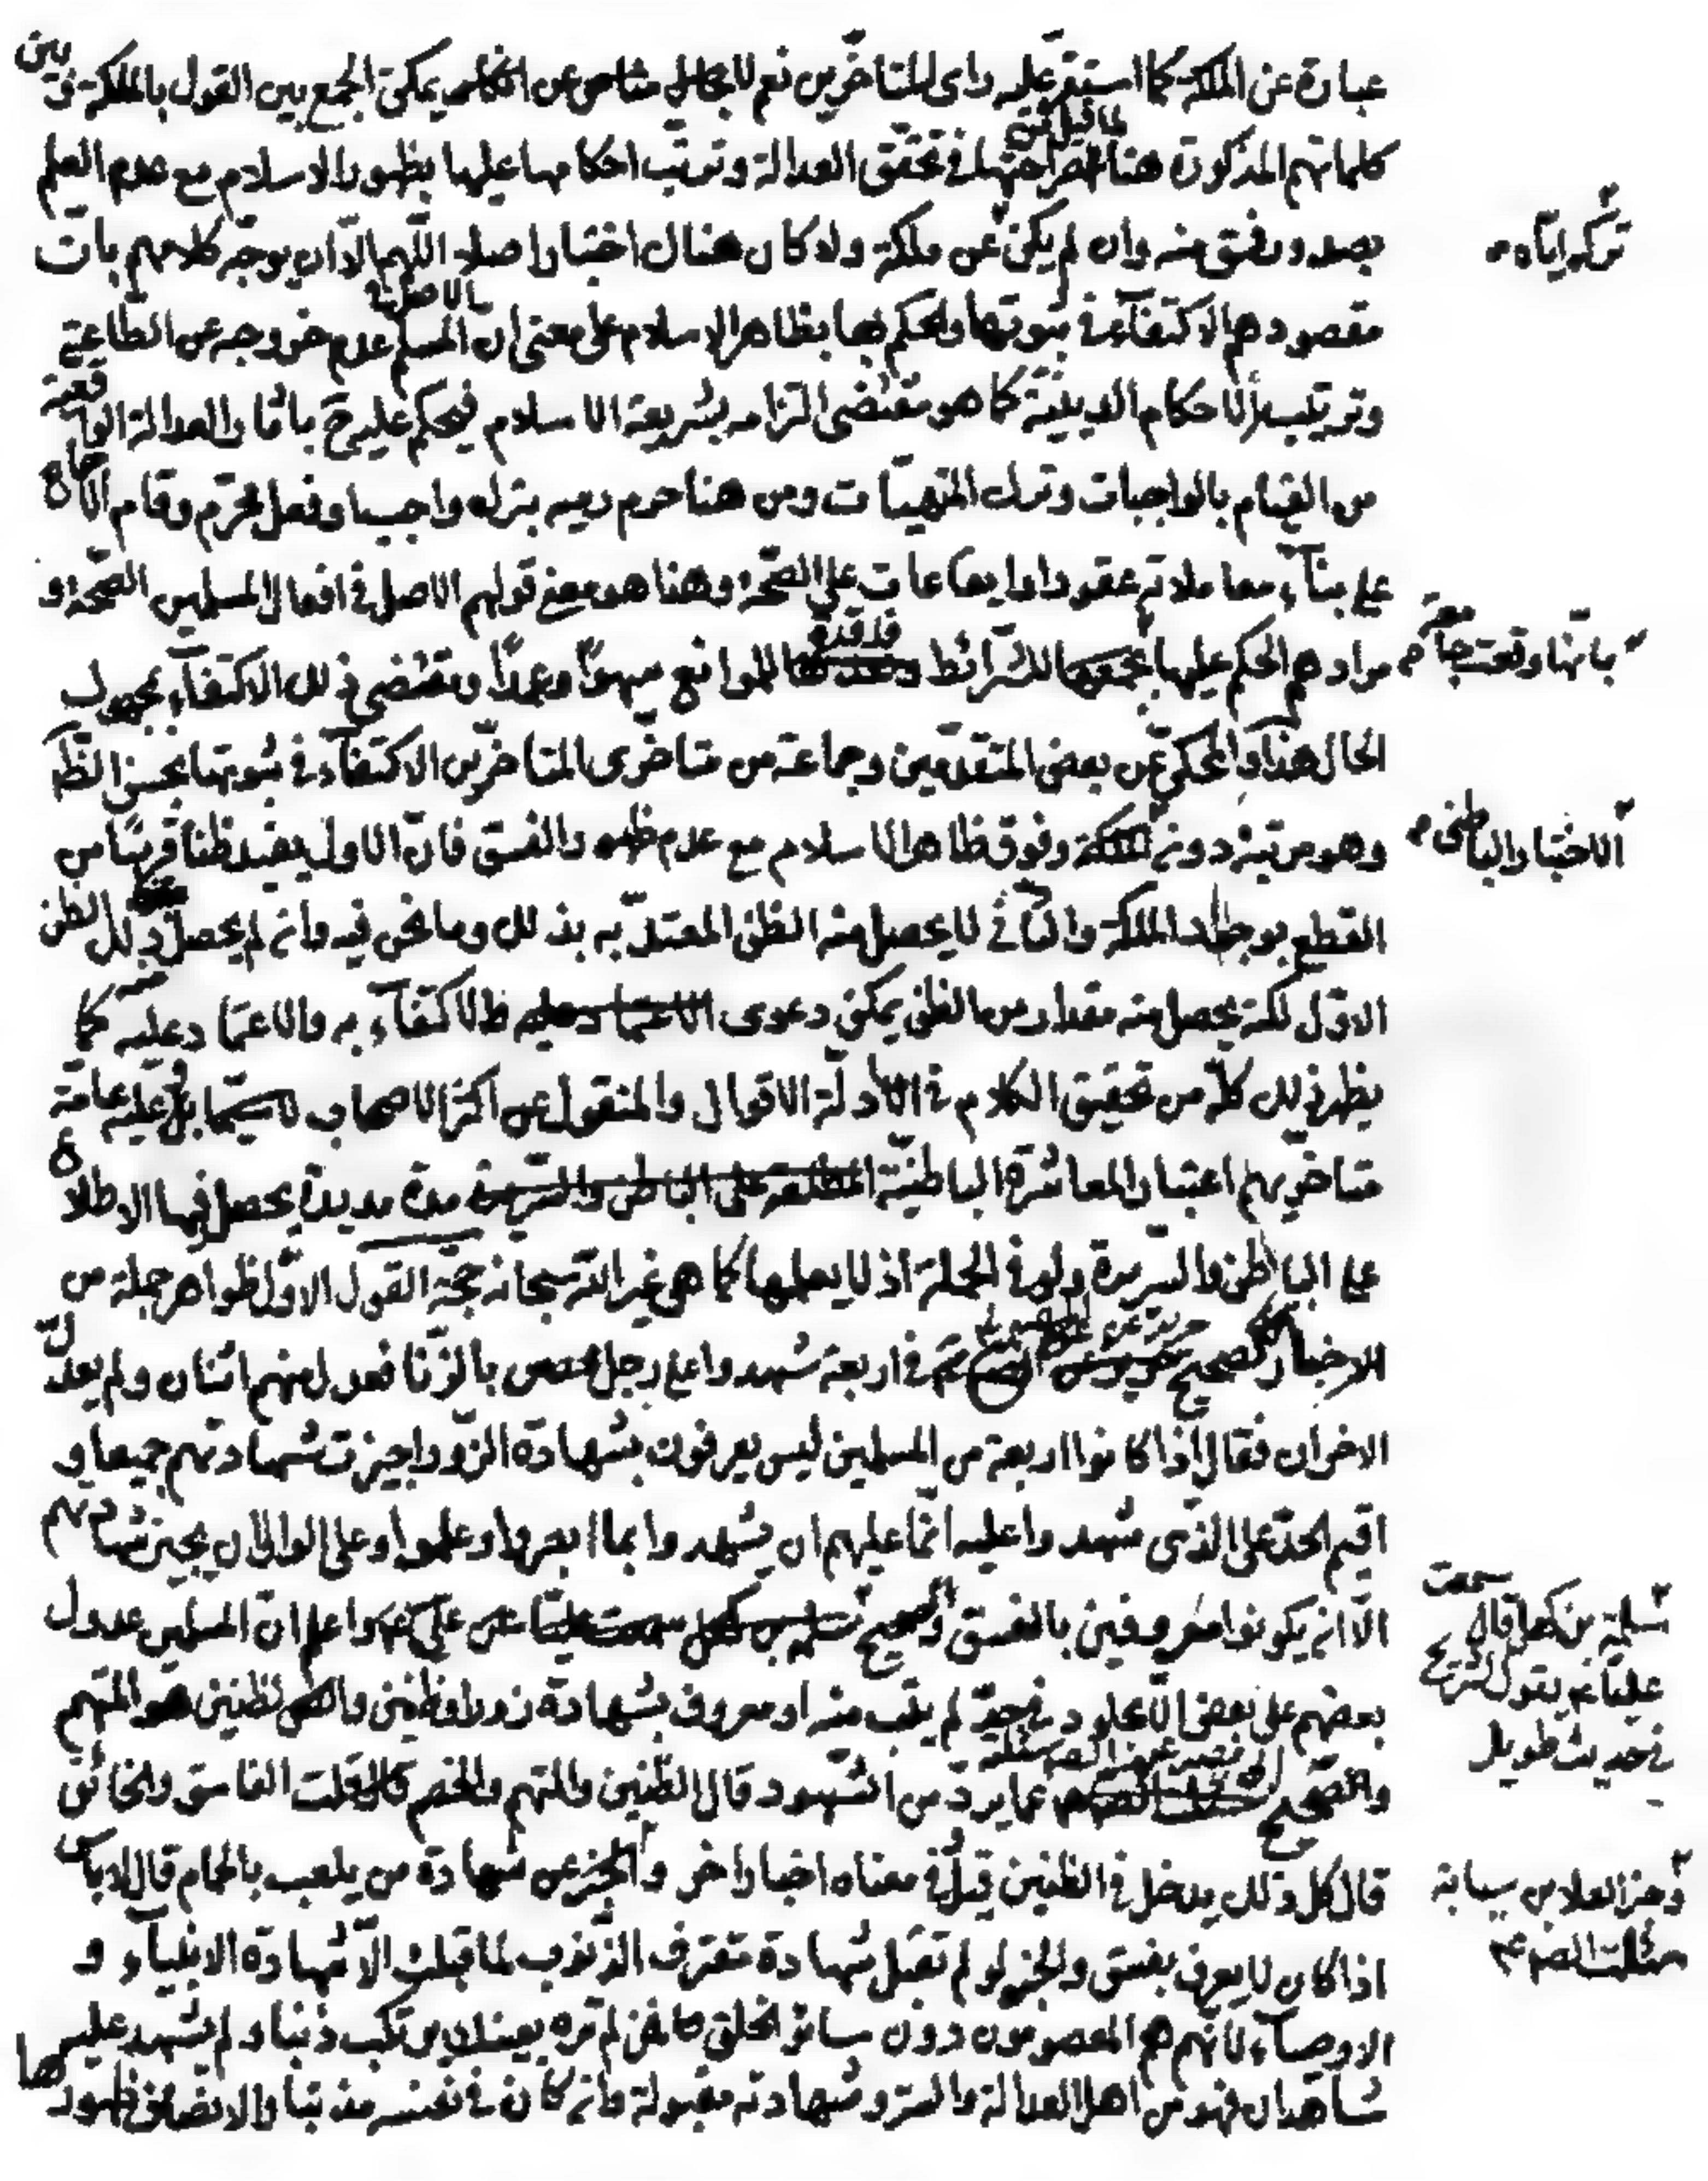 عبارة عن الملكة كما استقر عليه راى المتاخرين نعم لا يمكن الجمع بين القول بالملكة و بين
كلماتهم المذكورة هنا لصراحتها في تحقق العدالة وترتب احكامها عليها بظهور الاسلام مع عدم العلم
بصدور فسق منه وان لم يكن عن ملكة ولا كان هناك اختبار اصلا اللهم الا ان يوجه كلامهم بان
مقصودهم الاكتفاء في ثبوتها والحكم بها بظاهر الاسلام على معنى ان المسلم بالاصل عدم خروجه عن الطاعة
وترتيب الاحكام الدينية كما هو مقتضى التزامه بشريعة الاسلام فيحكم عليه ح باثار العدالة الواقعية
من القيام بالواجبات وترك المنهيات ومن هنا حرم رميه بترك واجب او فعل محرم وقام الاجماع
على بناء معاملاته عقودا وايقاعات على الصحة وهذا هو معنى قولهم الاصل في افعال المسلمين الصحة و
مرادهم الحكم عليها بانها وقعت جامعة للشرائط فاقدة للموانع سهوا وعمدا ومقتضى ذلك الاكتفاء بمجهول
الحال هذا والمحكي عن بعض المتقدمين وجماعة من متاخرى المتاخرين الاكتفاء في ثبوتها بحسن الظاهر
وهو مرتبة دون الاختبار الباطني وفوق ظاهر الاسلام مع عدم ظهور الفسق فان الاول يفيد ظنا قريبا من
القطع بوجود الملكة والثاني لا يحصل منه الظن المعتد به بذلك وما نحن فيه وان لم يحصل منه ذلك الظن
الاول لكنه يحصل منه مقدار من الظن يمكن دعوى الاكتفاء به والاعتماد عليه كما
يظهر ذلك كله من تحقيق الكلام في ادلة الاقوال والمنقول عن اكثر الاصحاب بل عليه عامة
متاخريهم اعتبار المعاشرة الباطنية مدة مديدة يحصل فيها الاطلاع
على الباطن والسريرة ولو في الجملة اذ لا يعلمها كما هي غير الله سبحانه حجة القول الاول ظواهر جملة من
الاخبار كصحيح حريز عن الصادق ع في اربعة شهدوا على رجل محصن بالزنا فعدل منهم اثنان ولم يعدل
الاخران فقال اذا كانوا اربعة من المسلمين ليس يعرفون بشهادة الزور اجيزت شهادتهم جميعا و
اقيم الحد على الذى شهدوا عليه انما عليهم ان يشهدوا بما ابصروا وعلموا وعلى الوالى ان يجيز شهادتهم
الا ان يكونوا معروفين بالفسق والصحيح واعلم ان المسلمين عدول
بعضهم على بعض الا مجلود في حد لم يتب منه او معروف بشهادة زور او ظنين والظنين هو المتهم
والصحيح عما يرد من الشهود قال الظنين والمتهم والخصم قال قلت الفاسق والخائن
قال كل ذلك يدخل في الظنين قيل وفي معناه اخبار اخر والخبر عن شهادة من يلعب بالحمام قال لا باس
اذا كان لا يعرف بفسق والخبر لو لم تقبل شهادة مقترف الذنوب لما قبلت الا شهادة الانبياء و
الاوصياء لانهم هم المعصومون دون سائر الخلق فمن لم تره بعينك يرتكب ذنبا او لم يشهد عليه
شاهدان فهو من اهل العدالة والستر وشهادته مقبولة وان كان في نفسه مذنبا والانصاف ظهورها
تركه اياه
بانها وقعت جامعة
الاختبار الباطني
سمعت
سلمة بن كهيل قال
عليا ع يقول لشريح
في حديث طويل
وخبر العلا بن سيابة
سئلت الصم ع